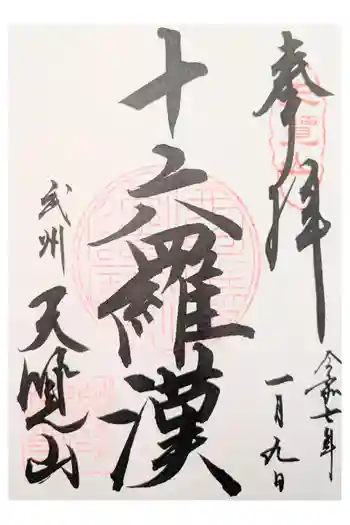 奉拝
令和七年
一月九日
十六羅漢
武州
天覧山